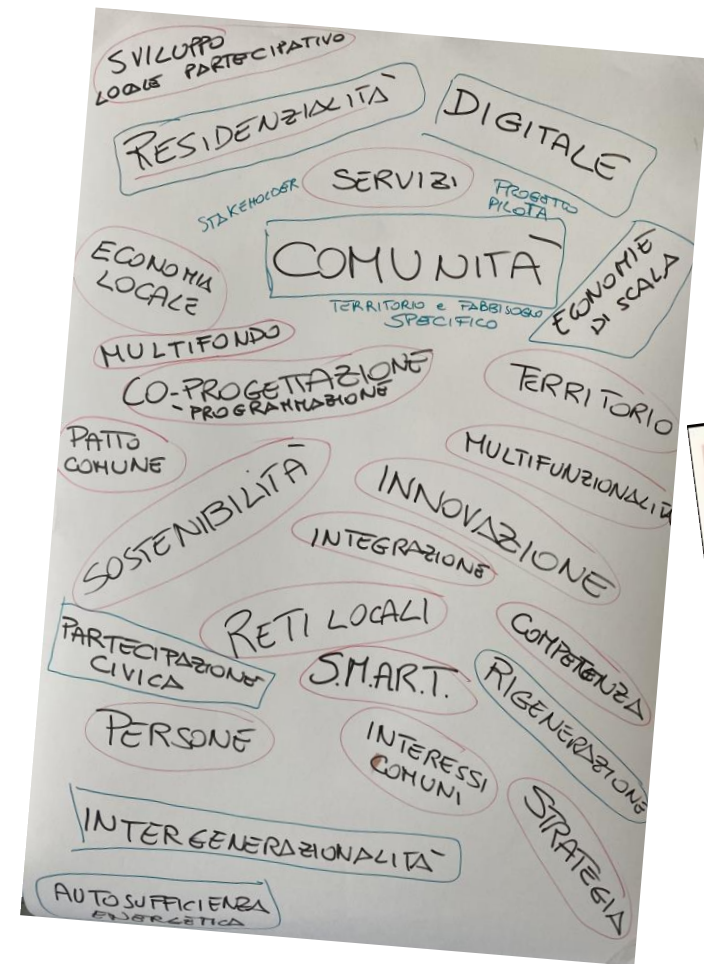 SVILUPPO
LOCALE PARTECIPATIVO
RESIDENZIALITÀ
DIGITALE
SERVIZI
STAKEHOLDER
PROGETTO
PILOTA
COMUNITÀ
ECONOMIA
LOCALE
ECONOMIE
DI SCALA
TERRITORIO e FABBISOGNO
SPECIFICO
MULTIFONDO
CO-PROGETTAZIONE
-PROGRAMMAZIONE
TERRITORIO
PATTO
COMUNE
MULTIFUNZIONALITÀ
SOSTENIBILITÀ
INNOVAZIONE
INTEGRAZIONE
RETI LOCALI
COMPETENZA
PARTECIPAZIONE
CIVICA
S.M.A.R.T.
RIGENERAZIONE
PERSONE
INTERESSI
COMUNI
STRATEGIA
INTERGENERAZIONALITÀ
AUTOSUFFICIENZA
ENERGETICA